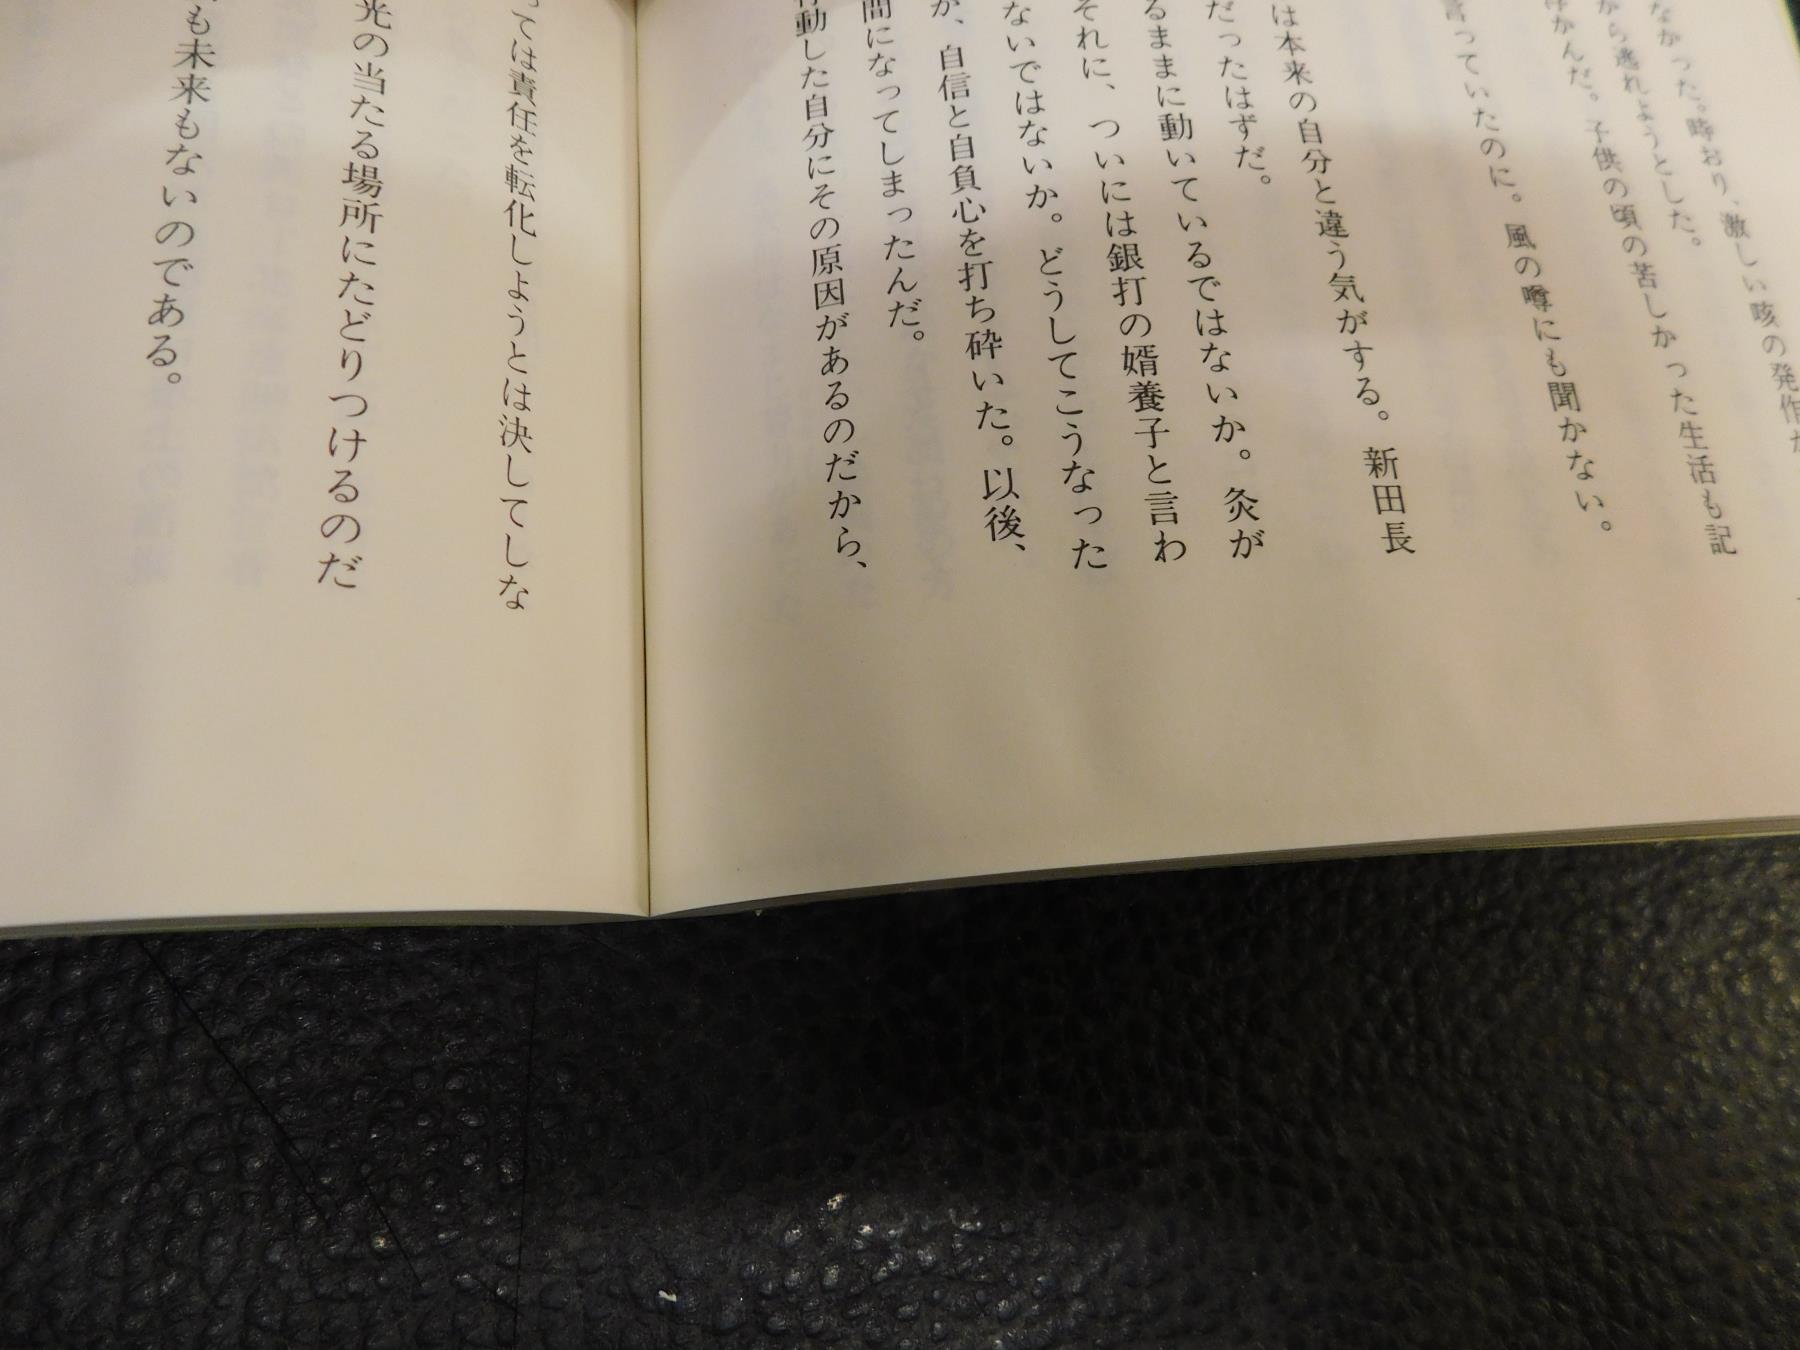 なかった。時おり、激しい咳の発作が
から逃れようとした。
浮かんだ。子供の頃の苦しかった生活も記
言っていたのに。風の噂にも聞かない。
は本来の自分と違う気がする。新田長
だったはずだ。
るままに動いているではないか。灸が
それに、ついには銀打の婿養子と言わ
ないではないか。どうしてこうなった
が、自信と自負心を打ち砕いた。以後、
間になってしまったんだ。
行動した自分にその原因があるのだから、
っては責任を転化しようとは決してしな
光の当たる場所にたどりつけるのだ
も未来もないのである。